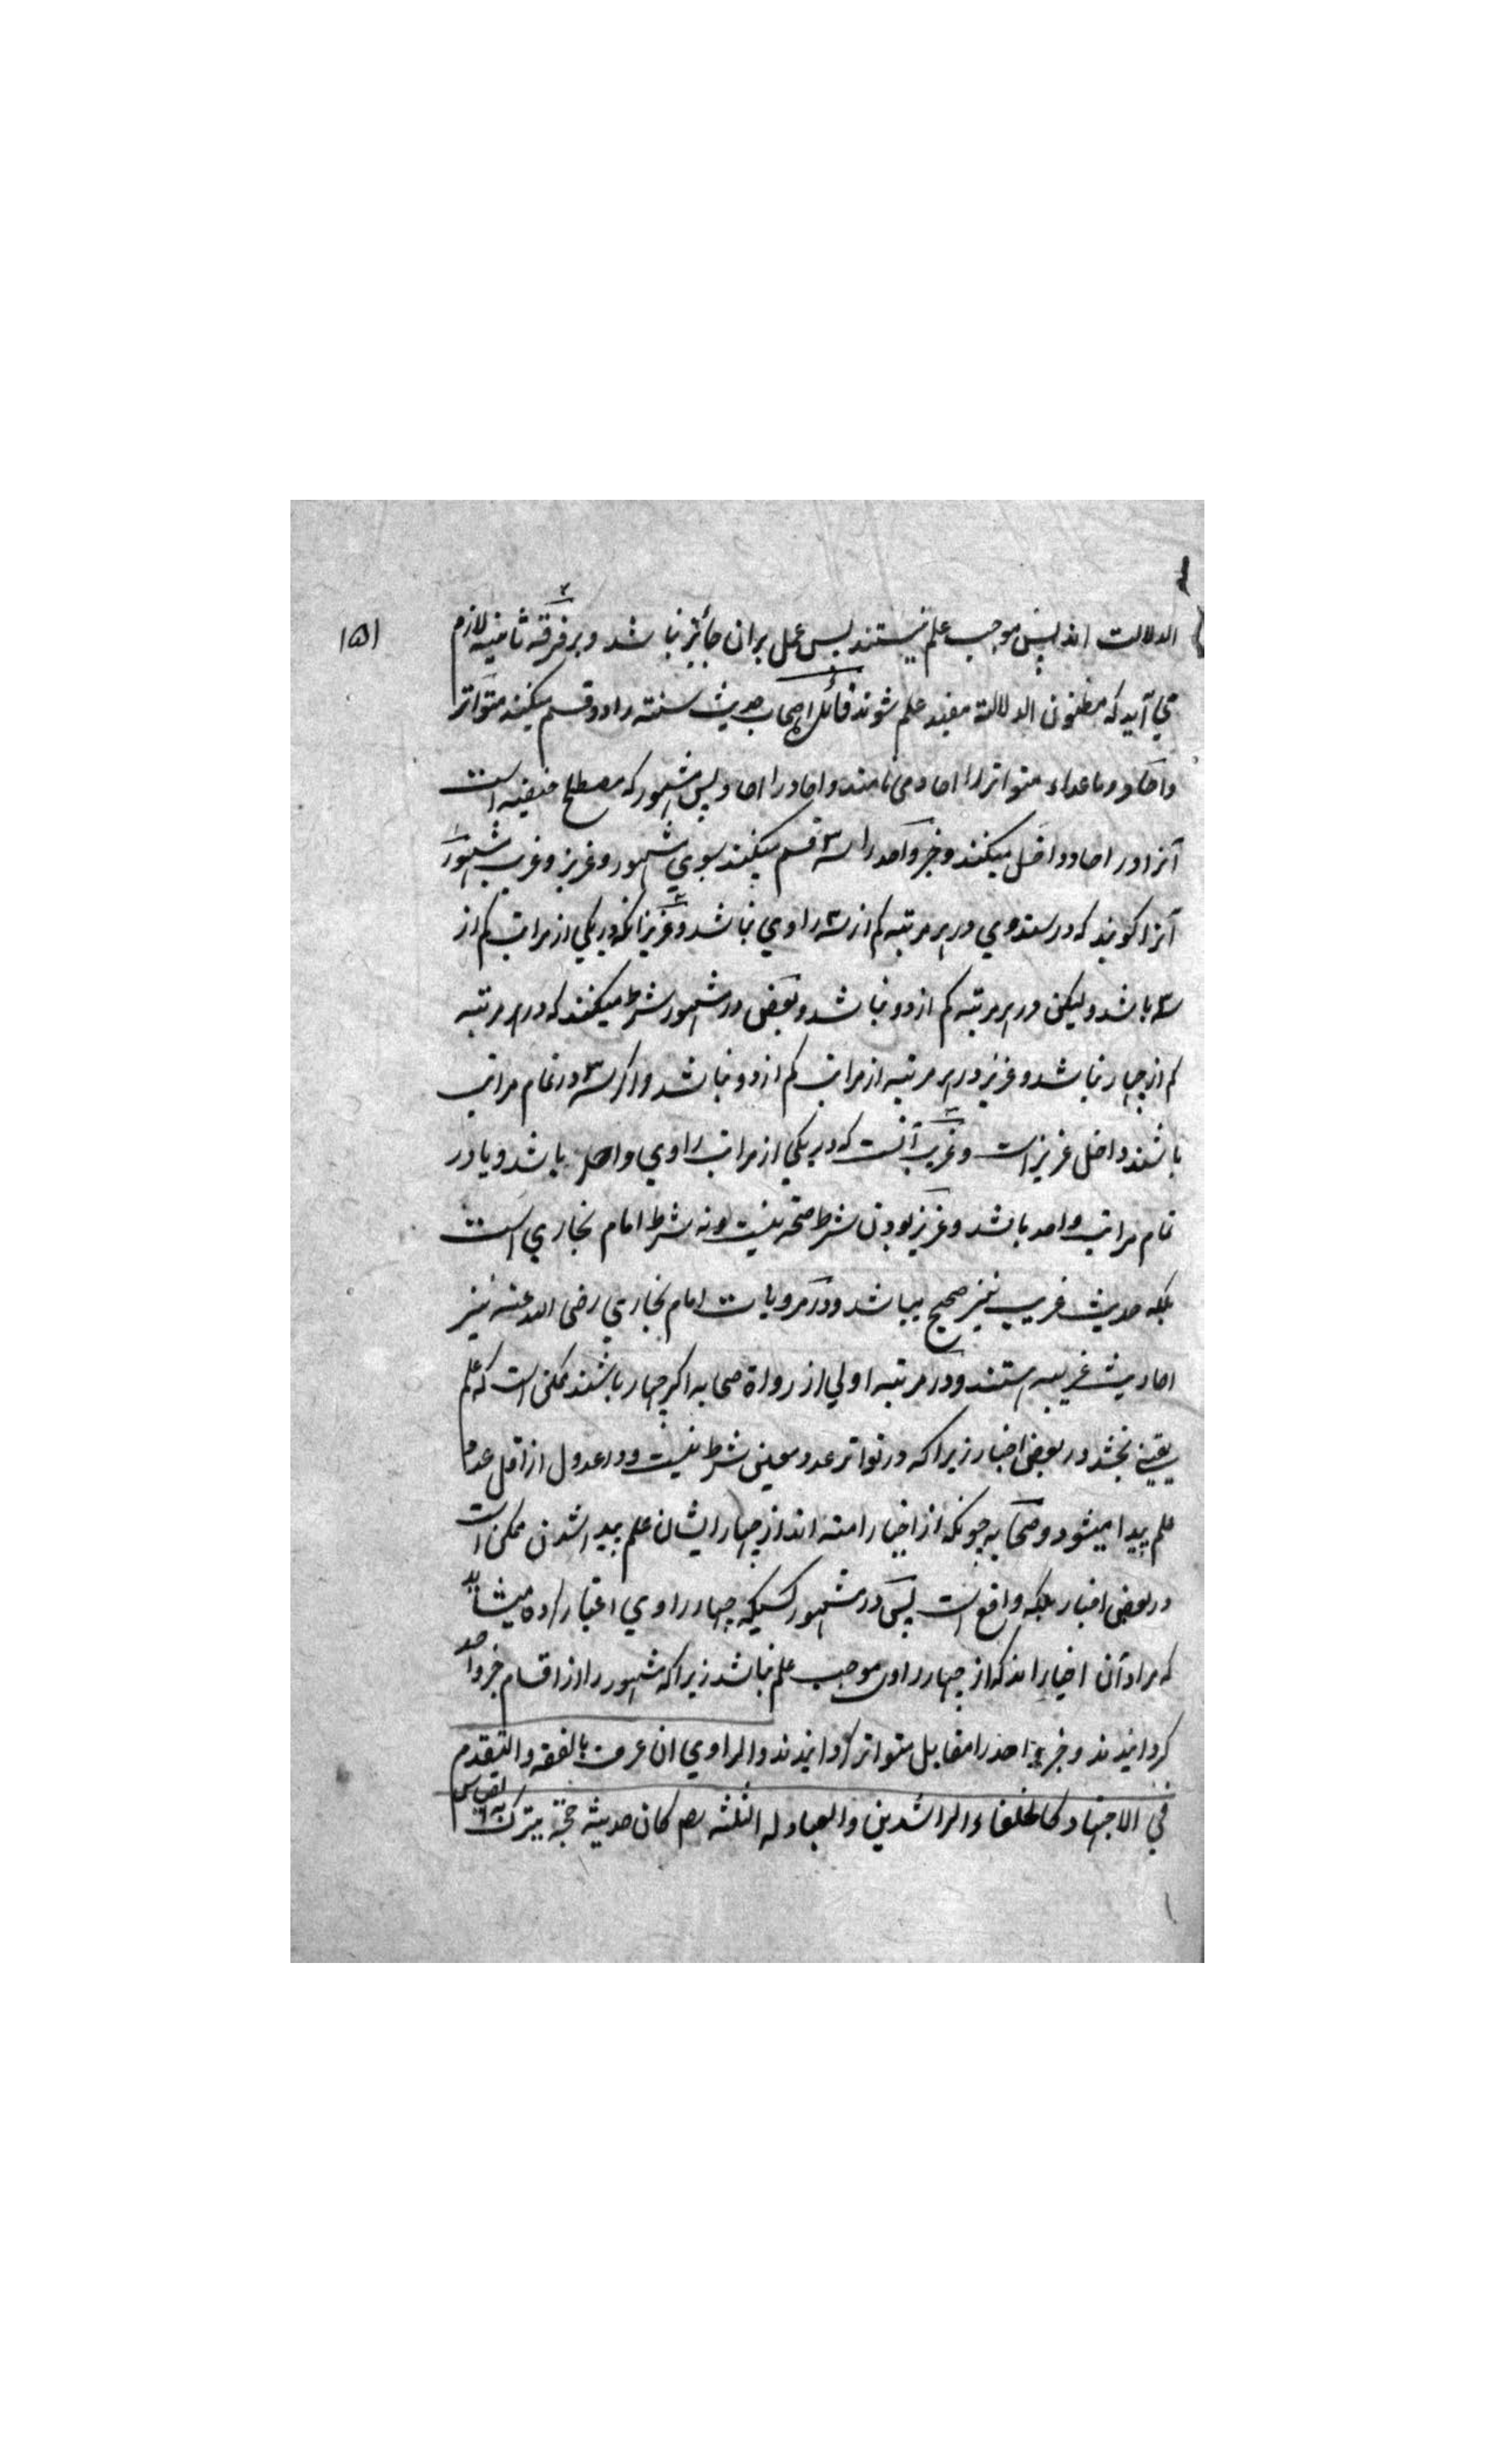 ۱۵۱
الدلالت اند پس موجب علم نیستند پس عمل بران جائز نباشد و بر فرقه ثانیه لازم
می آید که مظنون الدلالة مفید علم شوند فائدة اصحاب حدیث سنته را دو قسم میکنند متواتر
و احاد و ماعداء متواتر را احاد می نامند و احاد را احاد پس مشهور که مصطلح حنفیه است
آنرا در احاد داخل میکنند و خبر واحد را سه قسم میکنند بسوي مشهور و عزیز و غریب مشهور
آنرا کویند که در سند وي در هر مرتبه کم از سه راوي نباشد و عزیز انکه در یکي از مراتب کم از
سه باشد و لیکن در هر مرتبه کم از دو نباشد و بعضی در مشهور شرط میکنند که در هر مرتبه
کم از چهار نباشد و عزیز در هر مرتبه از مراتب کم از دو نباشد و اکر سه در تمام مراتب
باشند داخل عزیز است و غریب آنست که در یکي از مراتب راوي واحد باشد و یا در
تمام مراتب واحد باشد و عزیز بودن شرط صحة نیست و نه شرط امام بخاري است
بلکه حدیث غریب نیز صحیح میباشد و در مرویات امام بخاري رضی الله عنه نیز
احادیث غریبه هستند و در مرتبه اولي از رواة صحابه اکر چهار باشند ممکن است که علم
یقیني بخشد در بعضی اخبار زیرا که در تواتر عدد معینی شرط نیست و در عدول از اقل عدد
علم پیدا میشود و صحابه چونکه از اخیار امته اند از چهار ایشان علم پیدا شدن ممکن است
در بعضی اخبار بلکه واقع است پس در مشهور کسیکه چهار راوي اعتبار کرده میشاید
که مراد آن اخبار اند که از چهار راوی موجب علم نباشد زیرا که مشهور را از اقسام خبر واحد
کردانیدند و خبر واحد را مقابل متواتر کردانیدند والراوي ان عرف بالفقه والتقدم
في الاجتهاد کالخلفاء الراشدین والعبادله الثلثه رضم کان حدیثه حجة یترک به القیاس